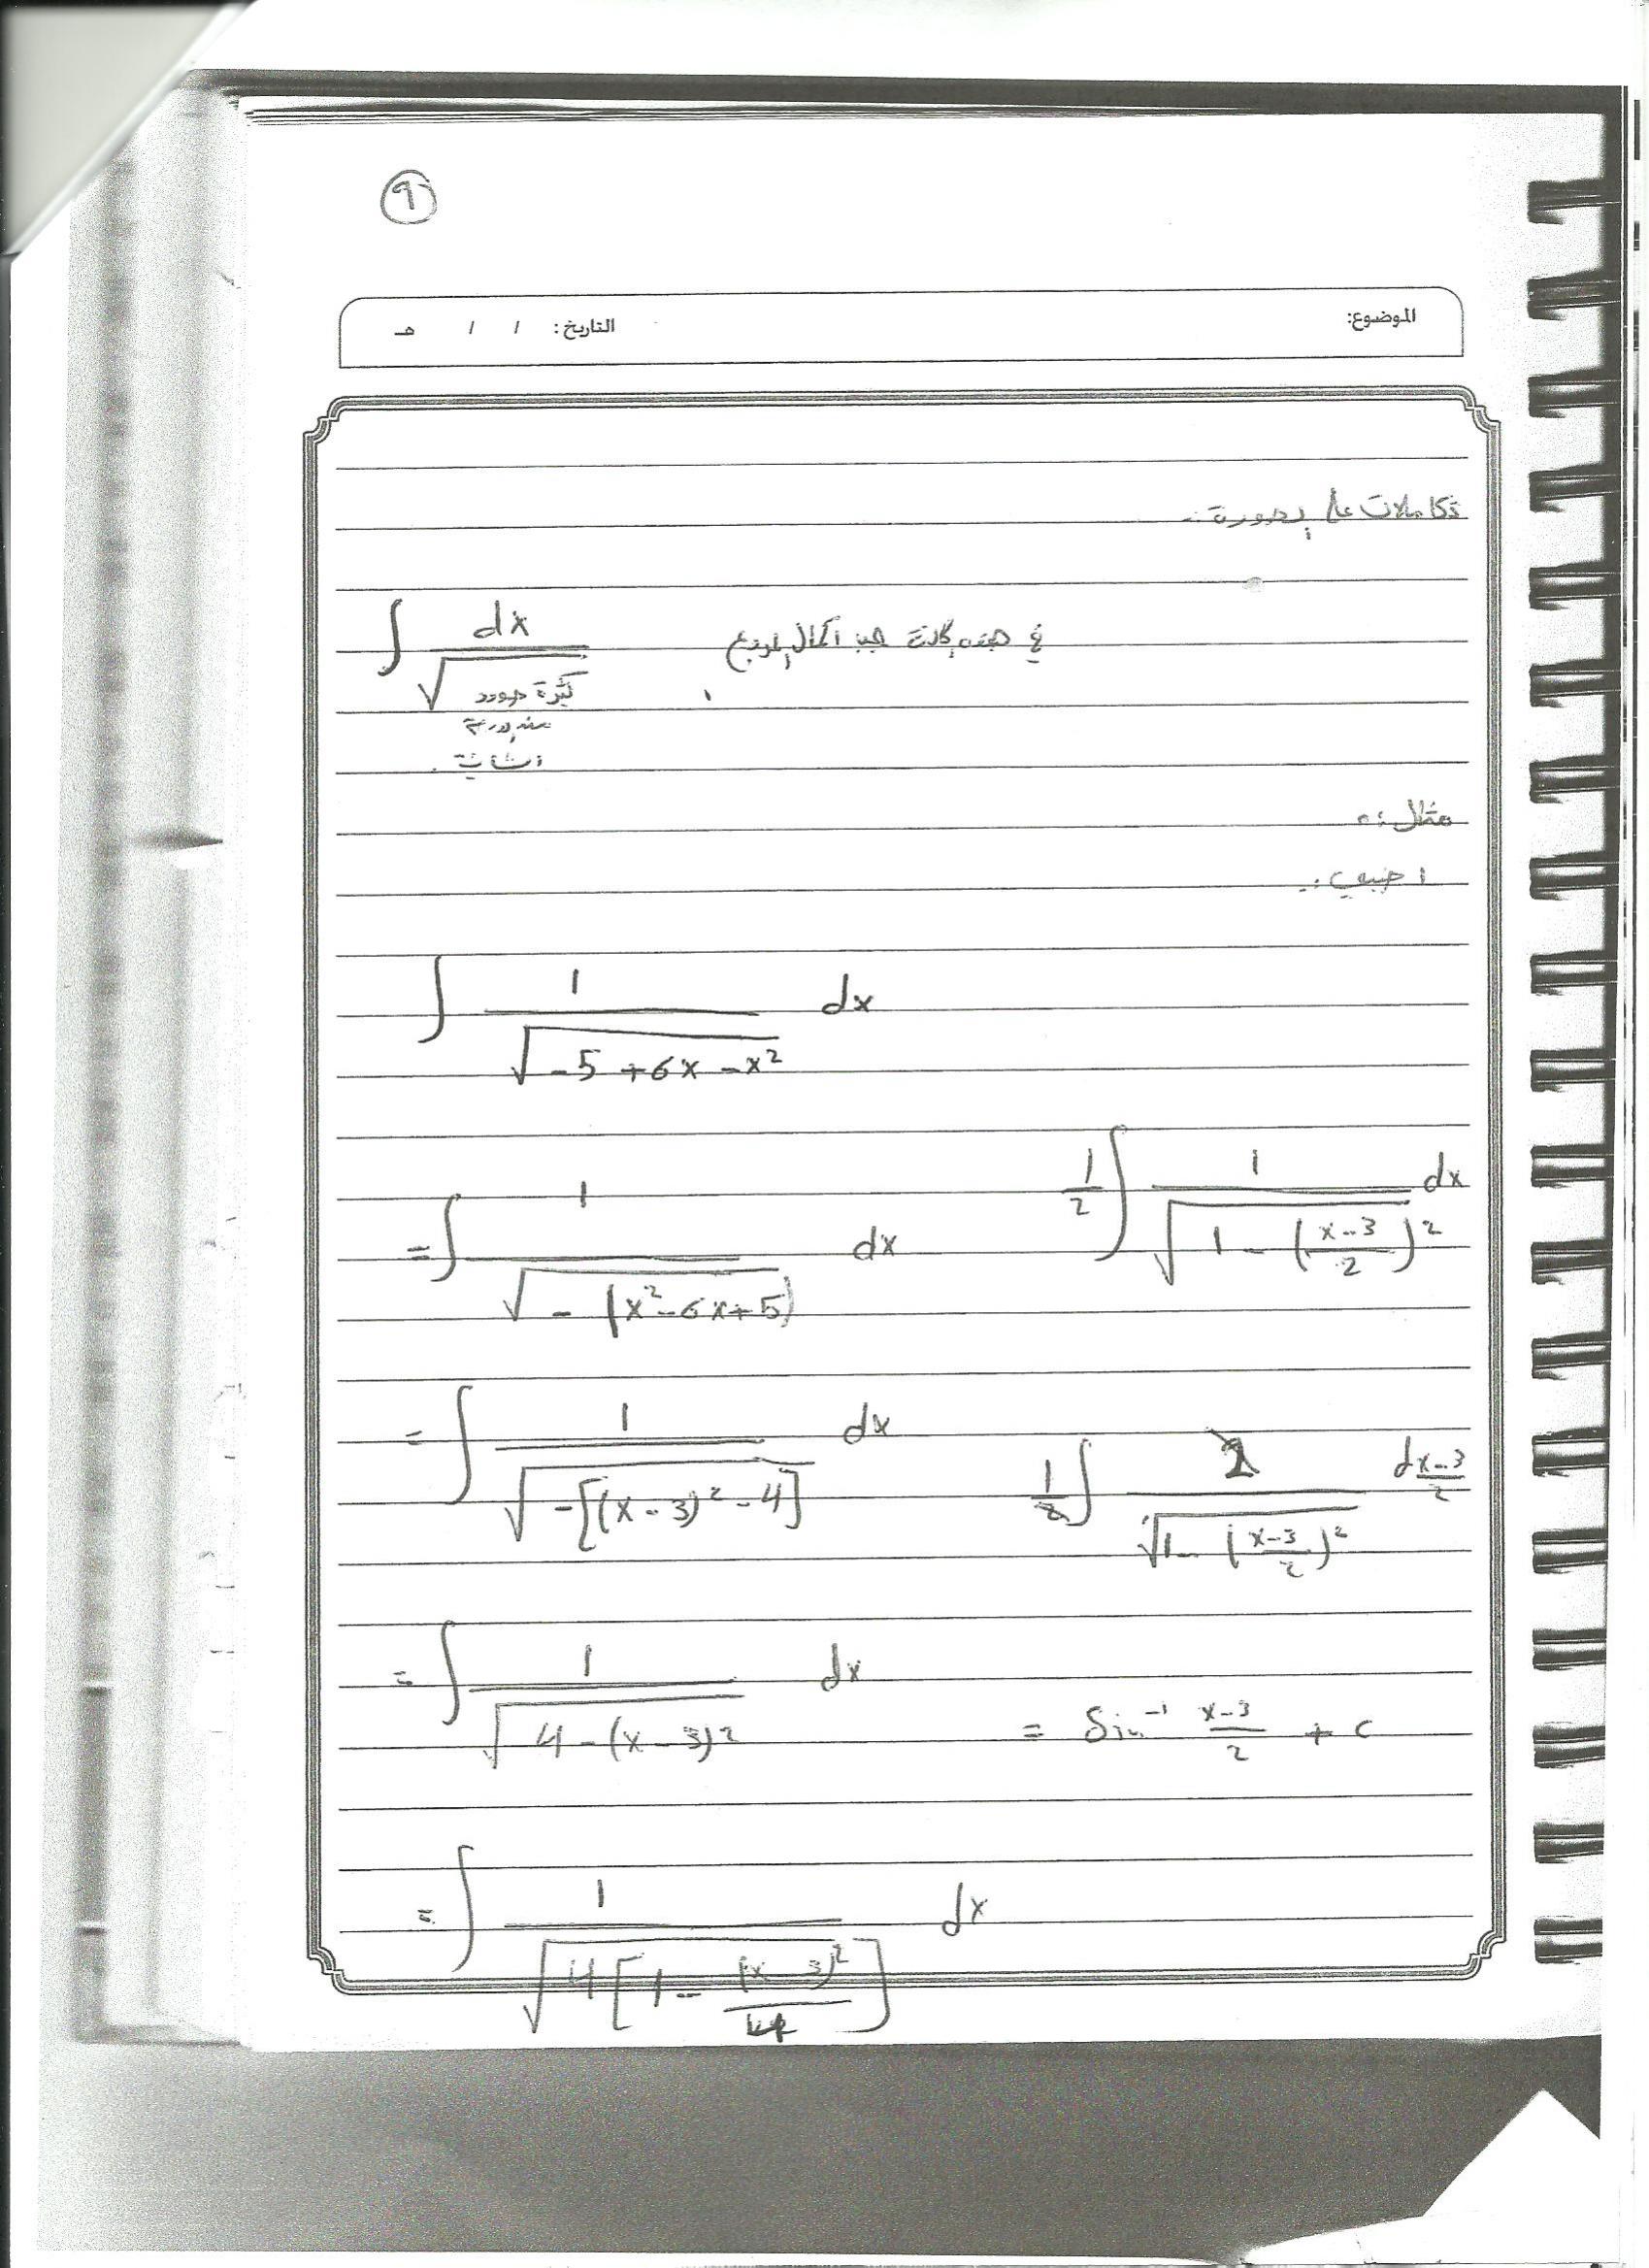 ٩
الموضوع:
التاريخ: / / هـ
تكاملات على الصورة :-
∫ dx / √(كثيرة حدود من الدرجة الثانية)
في هذه الحالة يجب اكمال المربع
مثال :-
احسبي :-
∫ 1/√(-5 + 6x - x²) dx
= ∫ 1/√(-(x² - 6x + 5)) dx
= ∫ 1/√(-[(x - 3)² - 4]) dx
= ∫ 1/√(4 - (x - 3)²) dx
= ∫ 1/√(4[1 - (x - 3)²/4]) dx
1/2 ∫ 1/√(1 - ((x - 3)/2)²) dx
1/2 ∫ 2/√(1 - ((x - 3)/2)²) d (x - 3)/2
= Sin⁻¹ (x - 3)/2 + c